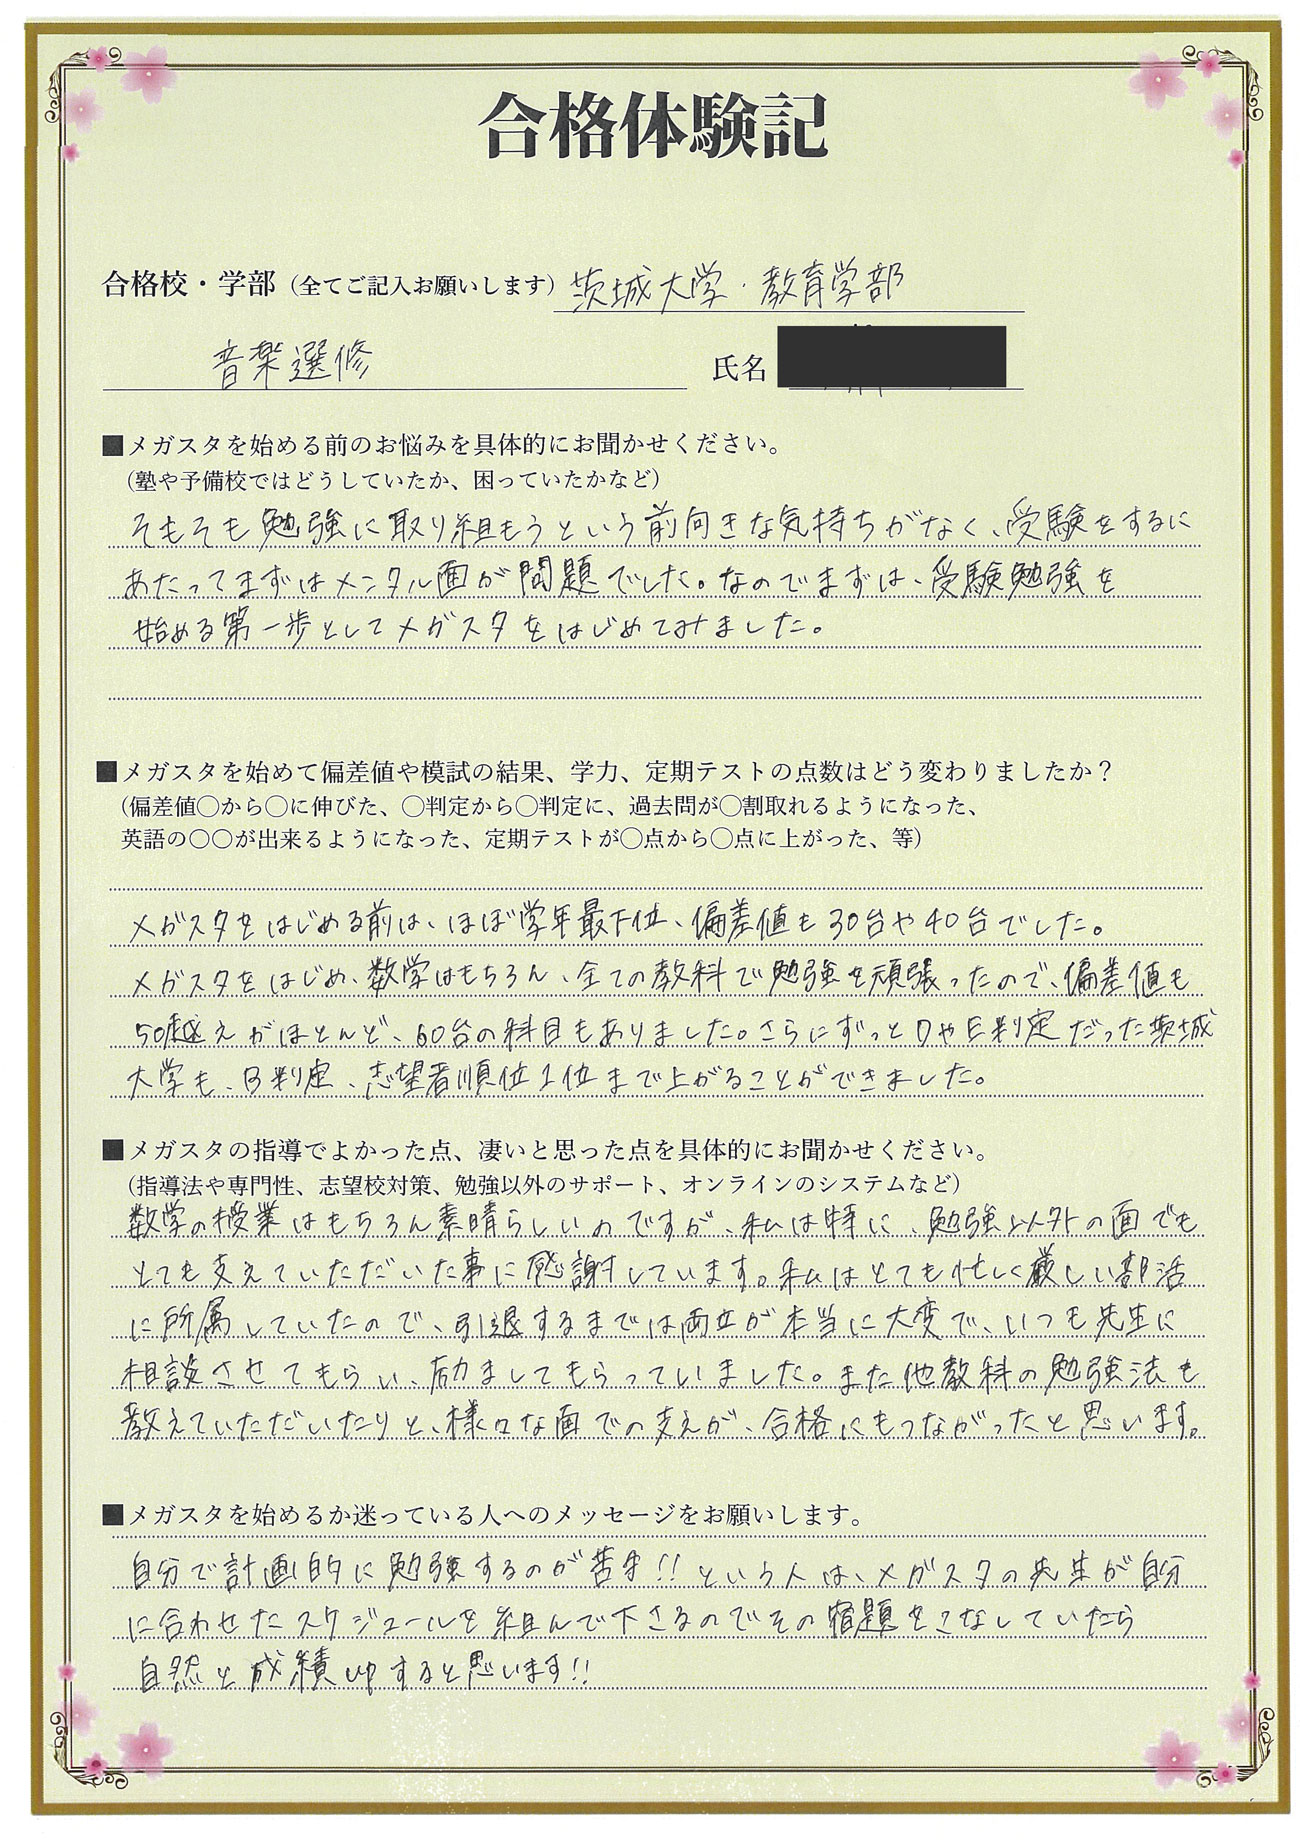 合格体験記
合格校・学部（全てご記入お願いします）茨城大学・教育学部
音楽選修 氏名
■メガスタを始める前のお悩みを具体的にお聞かせください。
（塾や予備校ではどうしていたか、困っていたかなど）
そもそも勉強に取り組もうという前向きな気持ちがなく、受験をするに
あたってまずはメンタル面が問題でした。なのでまずは、受験勉強を
始める第一歩としてメガスタをはじめてみました。
■メガスタを始めて偏差値や模試の結果、学力、定期テストの点数はどう変わりましたか？
（偏差値〇から〇に伸びた、〇判定から〇判定に、過去問が〇割取れるようになった、
英語の〇〇が出来るようになった、定期テストが〇点から〇点に上がった、等）
メガスタをはじめる前は、ほぼ学年最下位、偏差値も30台や40台でした。
メガスタをはじめ、数学はもちろん、全ての教科で勉強を頑張ったので、偏差値も
50越えがほとんど、60台の科目もありました。さらにずっとDやE判定だった茨城
大学も、B判定、志望者順位1位まで上がることができました。
■メガスタの指導でよかった点、凄いと思った点を具体的にお聞かせください。
（指導法や専門性、志望校対策、勉強以外のサポート、オンラインのシステムなど）
数学の授業はもちろん素晴らしいのですが、私は特に、勉強以外の面でも
とても支えていただいた事に感謝しています。私はとても忙しく厳しい部活
に所属していたので、引退するまでは両立が本当に大変で、いつも先生に
相談させてもらい、励ましてもらっていました。また他教科の勉強法も
教えていただいたりと、様々な面での支えが、合格にもつながったと思います。
■メガスタを始めるか迷っている人へのメッセージをお願いします。
自分で計画的に勉強するのが苦手!!という人は、メガスタの先生が自分
に合わせたスケジュールを組んで下さるのでその宿題をこなしていたら
自然と成績upすると思います!!